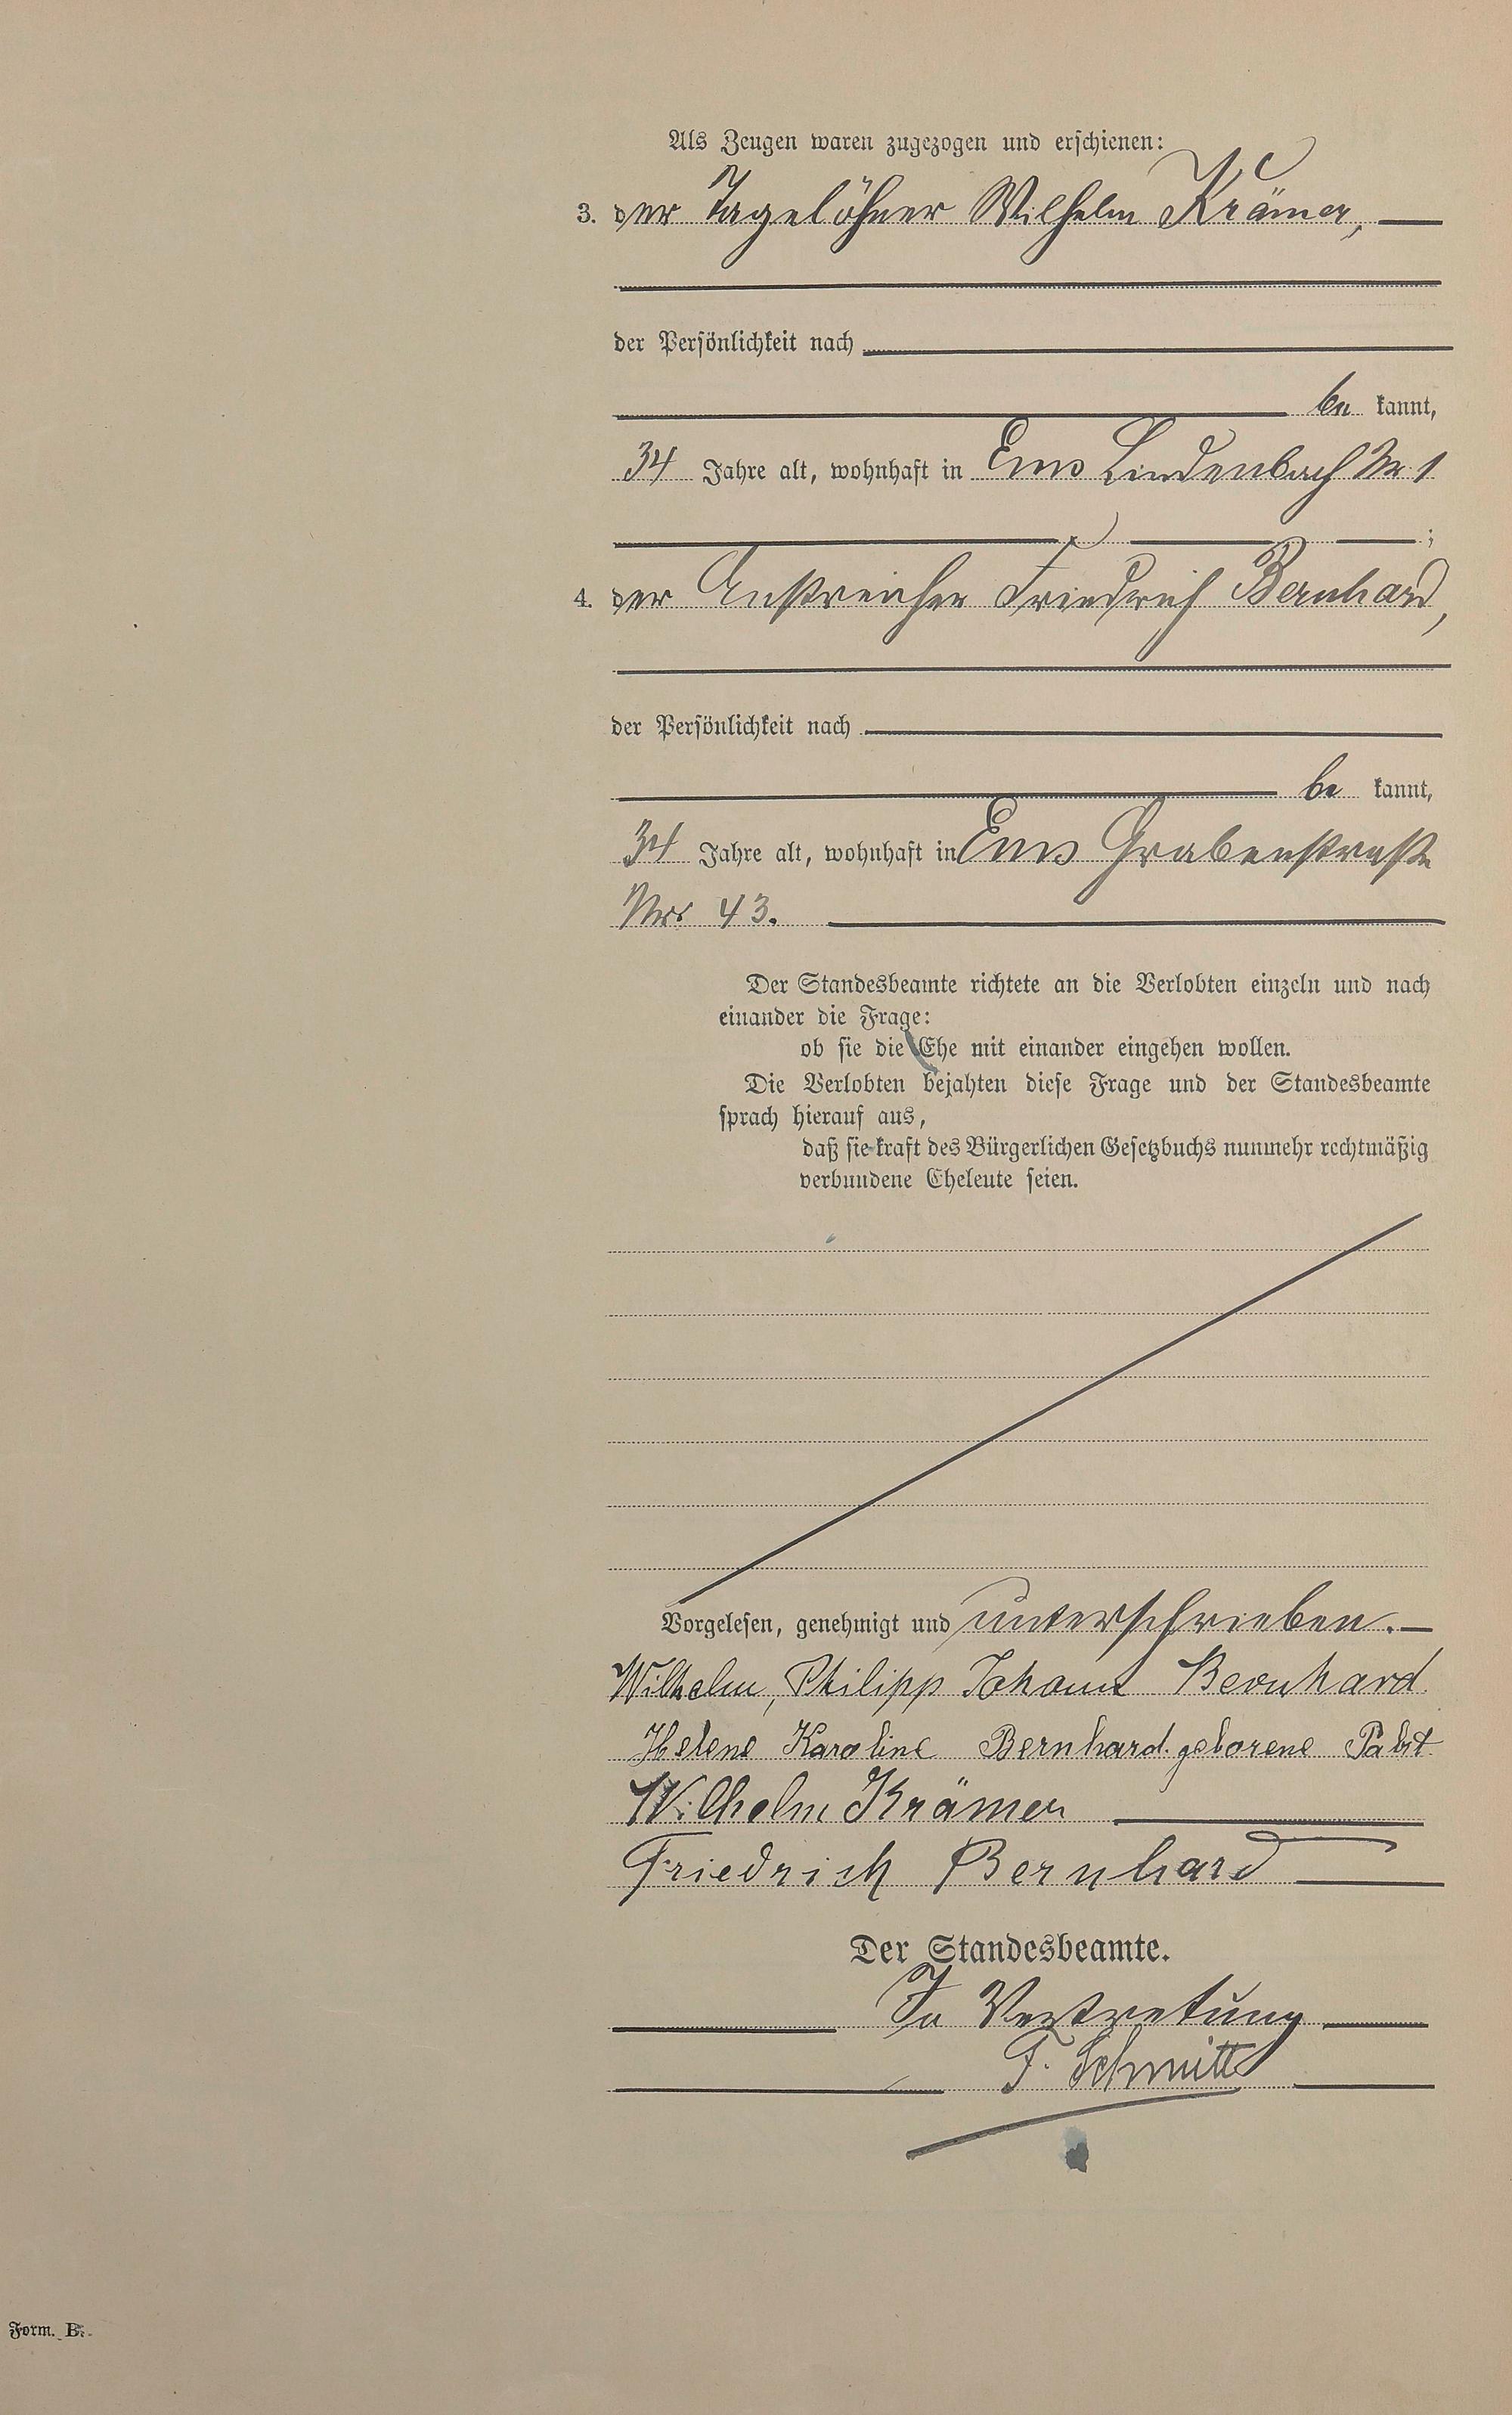 Als Zeugen waren zugezogen und erschienen:
3. der Tagelöhner Wilhelm Krämer,
der Persönlichkeit nach
be kannt,
34 Jahre alt, wohnhaft in Ems Lindenbach Nr. 1
;
4. der Anstreicher Friedrich Bernhard,
der Persönlichkeit nach
be kannt,
34 Jahre alt, wohnhaft in Ems Grabenstraße
Nro 43.
Der Standesbeamte richtete an die Verlobten einzeln und nach
einander die Frage:
ob sie die Ehe mit einander eingehen wollen.
Die Verlobten bejahten diese Frage und der Standesbeamte
sprach hierauf aus,
daß sie kraft des Bürgerlichen Gesetzbuchs nunmehr rechtmäßig
verbundene Eheleute seien.
Vorgelesen, genehmigt und unterschrieben.
Wilhelm, Philipp Johann Bernhard
Helene Karoline Bernhard. geborene Pabst
Wilhelm Krämer
Friedrich Bernhard
Der Standesbeamte.
In Vertretung
F. Schmitt
Form. B.